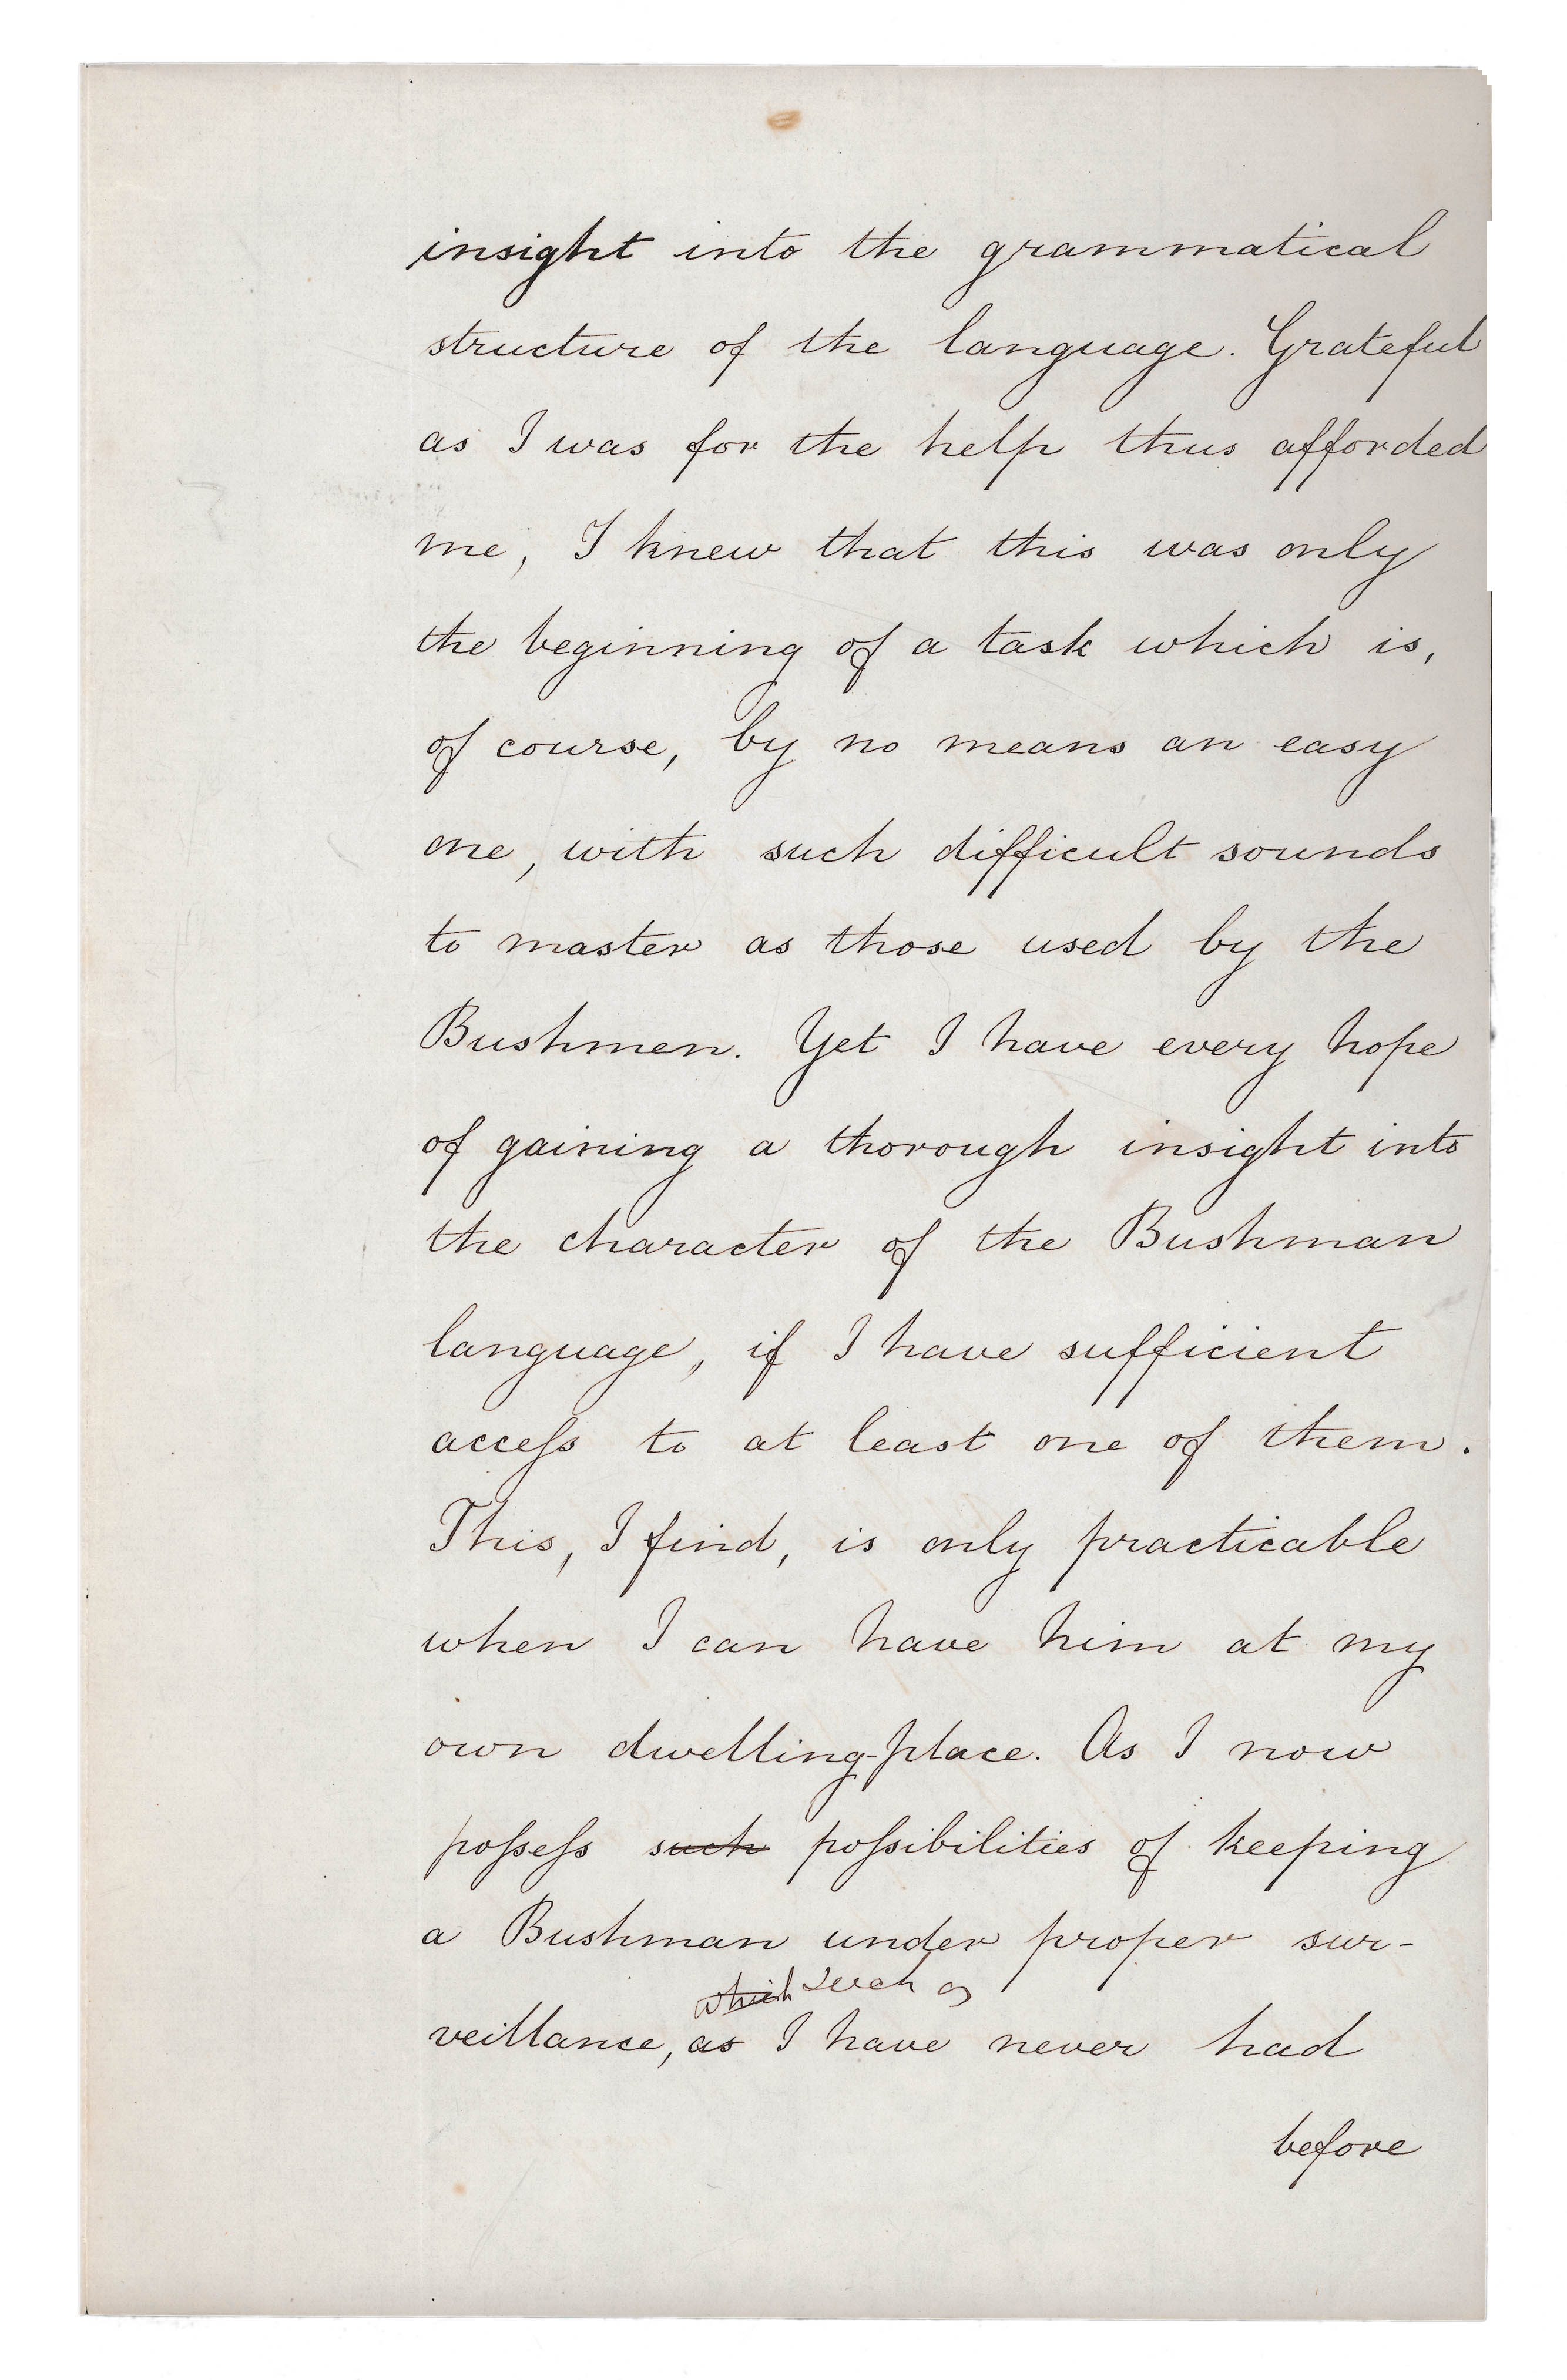 insight into the grammatical
structure of the language. Grateful
as I was for the help thus afforded
me, I knew that this was only
the beginning of a task which is,
of course, by no means an easy
one, with such difficult sounds
to master as those used by the
Bushmen. Yet I have every hope
of gaining a thorough insight into
the character of the Bushman
language, if I have sufficient
access to at least one of them.
This, I find, is only practicable
when I can have him at my
own dwelling-place. As I now
possess such possibilities of keeping
a Bushman under proper sur-
which such as
veillance, as I have never had
before